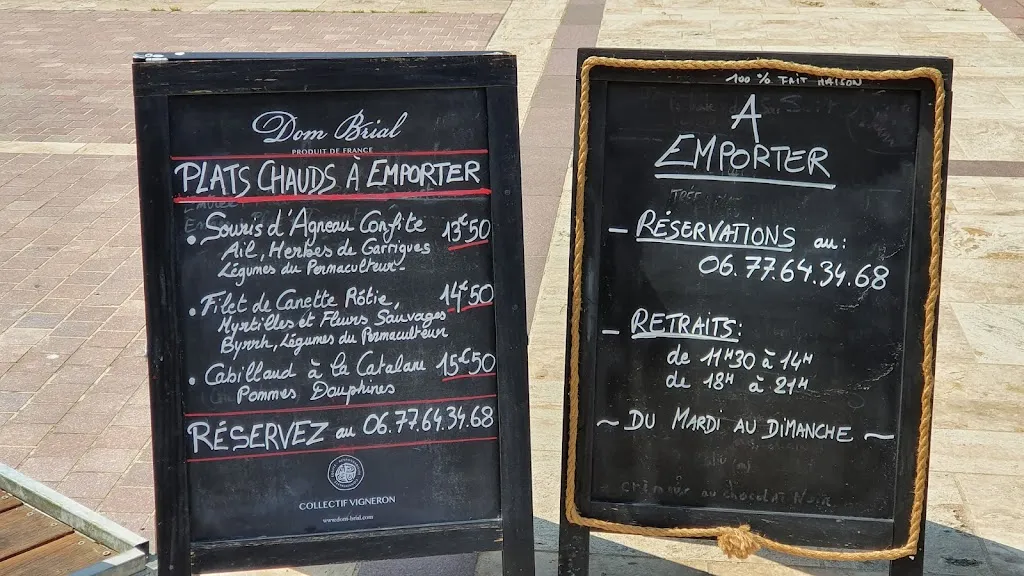 Dom Brial
PRODUIT DE FRANCE
PLATS CHAUDS À EMPORTER
• Souris d'Agneau Confite 13€50
Ail, Herbes de Garrigues
Légumes du Permaculteur-
• Filet de Canette Rôtie, 14€50
Myrtilles et Fleurs Sauvages
Byrrh, Légumes du Permaculteur
• Cabillaud à la Catalane 15€50
Pommes Dauphines
RÉSERVEZ au 06.77.64.34.68
COLLECTIF VIGNERON
www.dom-brial.com
100 % FAIT MAISON
A
EMPORTER
– RÉSERVATIONS au:
06.77.64.34.68
– RETRAITS:
de 11H30 à 14H
de 18H à 21H
~ DU MARDI AU DIMANCHE ~
au chocolat Noir